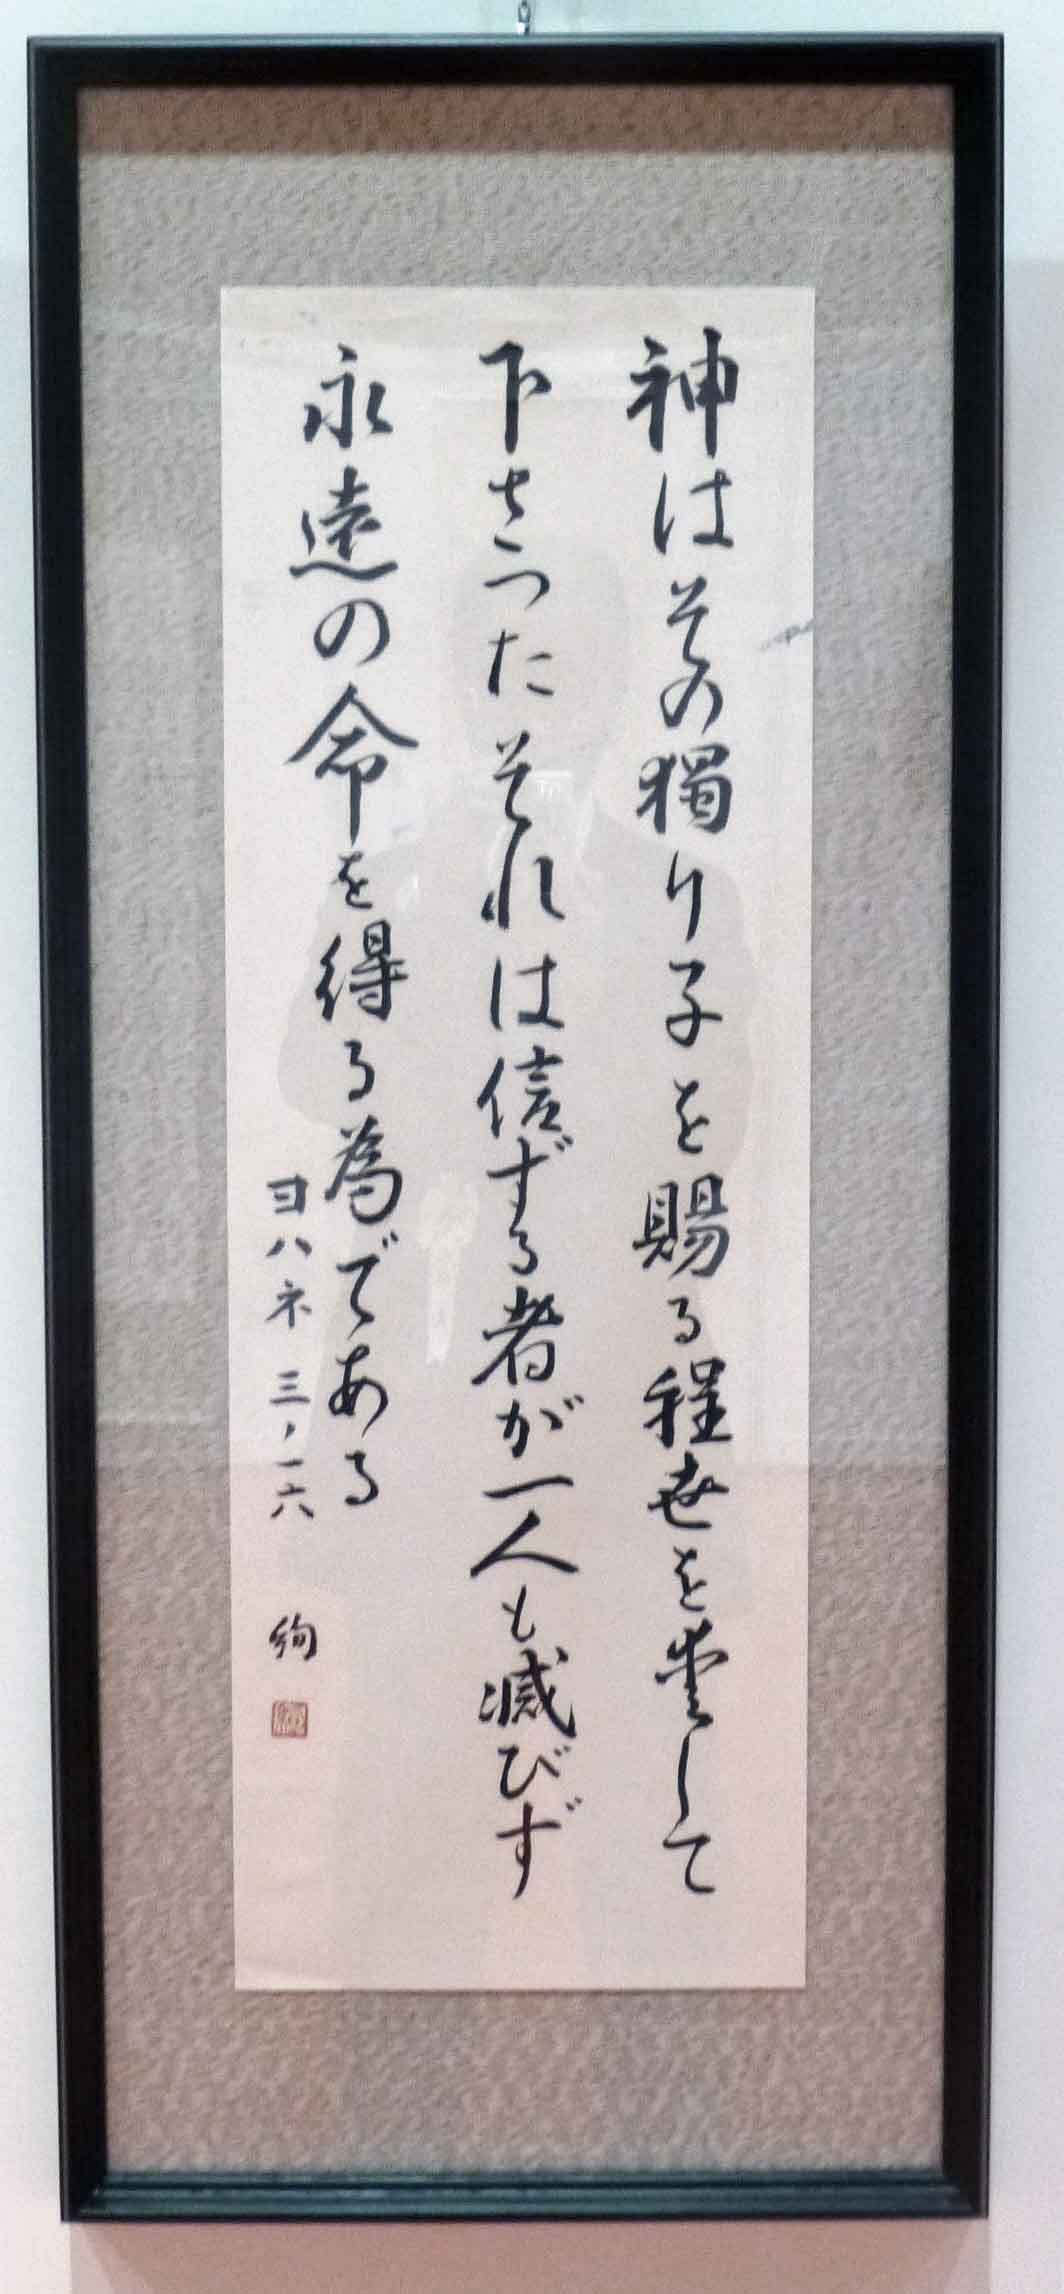 神はその獨り子を賜る程世を愛して
下さつたそれは信ずる者が一人も滅びず
永遠の命を得る為である
ヨハネ 三ノ一六 絢